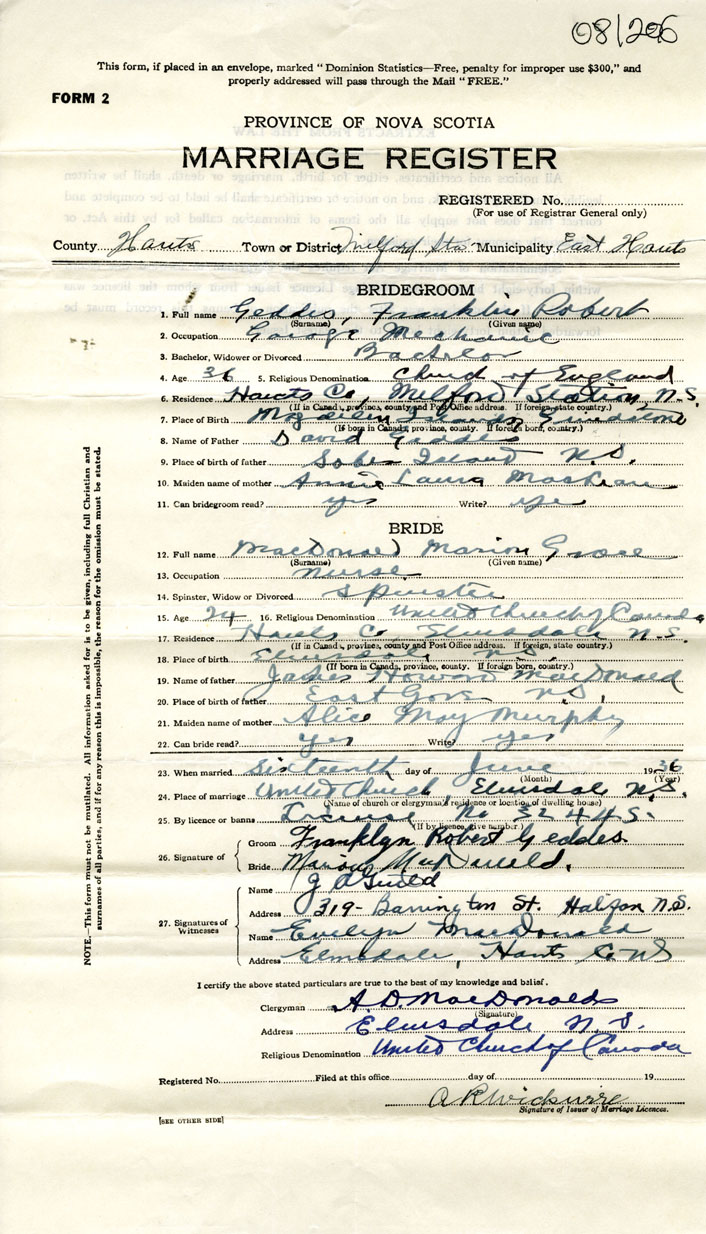 08/206
This form, if placed in an envelope, marked "Dominion Statistics—Free, penalty for improper use $300," and
properly addressed will pass through the Mail "FREE."
FORM 2
PROVINCE OF NOVA SCOTIA
MARRIAGE REGISTER
REGISTERED No.
(For use of Registrar General only)
County Hants Town or District Milford Sta. Municipality East Hants
BRIDEGROOM
1. Full name Geddes, Franklin Robert
(Surname) (Given name)
2. Occupation Garage Mechanic
3. Bachelor, Widower or Divorced Bachelor
4. Age 36 5. Religious Denomination Church of England
6. Residence Hants Co, Milford Station N.S.
(If in Canada, province, county and Post Office address. If foreign, state country.)
7. Place of Birth Magdalen Islands
(If born in Canada, province, county. If foreign born, country.)
8. Name of Father David Geddes
9. Place of birth of father Sober Island N.S.
10. Maiden name of mother Annie Laura
11. Can bridegroom read? yes Write? yes
BRIDE
12. Full name MacDonald Marion Grace
(Surname) (Given name)
13. Occupation Nurse
14. Spinster, Widow or Divorced Spinster
15. Age 24 16. Religious Denomination United Church of Canada
17. Residence Hants Co Elmsdale N.S.
(If in Canada, province, county and Post Office address. If foreign, state country.)
18. Place of birth Elmsdale N.S.
(If born in Canada, province, county. If foreign born, country.)
19. Name of father James Howard MacDonald
20. Place of birth of father East Gore N.S.
21. Maiden name of mother Alice May Murphy
22. Can bride read? yes Write? yes
23. When married Sixteenth day of June 1936
(Month) (Year)
24. Place of marriage United Church, Elmsdale N.S.
(Name of church or clergyman's residence or location of dwelling house)
25. By licence or banns License No 32445
(If by licence, give number)
26. Signature of
Groom Franklyn Robert Geddes.
Bride Marion MacDonald.
27. Signatures of Witnesses
Name J A Guild
Address 319- Barrington St. Halifax N.S.
Name Evelyn MacDonald
Address Elmsdale, Hants Co NS
I certify the above stated particulars are true to the best of my knowledge and belief.
Clergyman A.D. MacDonald
(Signature)
Address Elmsdale N.S.
Religious Denomination United Church of Canada
Registered No. Filed at this office day of 19
A R Wickwire
Signature of Issuer of Marriage Licences.
[SEE OTHER SIDE]
NOTE.—This form must not be mutilated. All information asked for is to be given, including full Christian and
surnames of all parties, and if for any reason this is impossible, the reason for the omission must be stated.